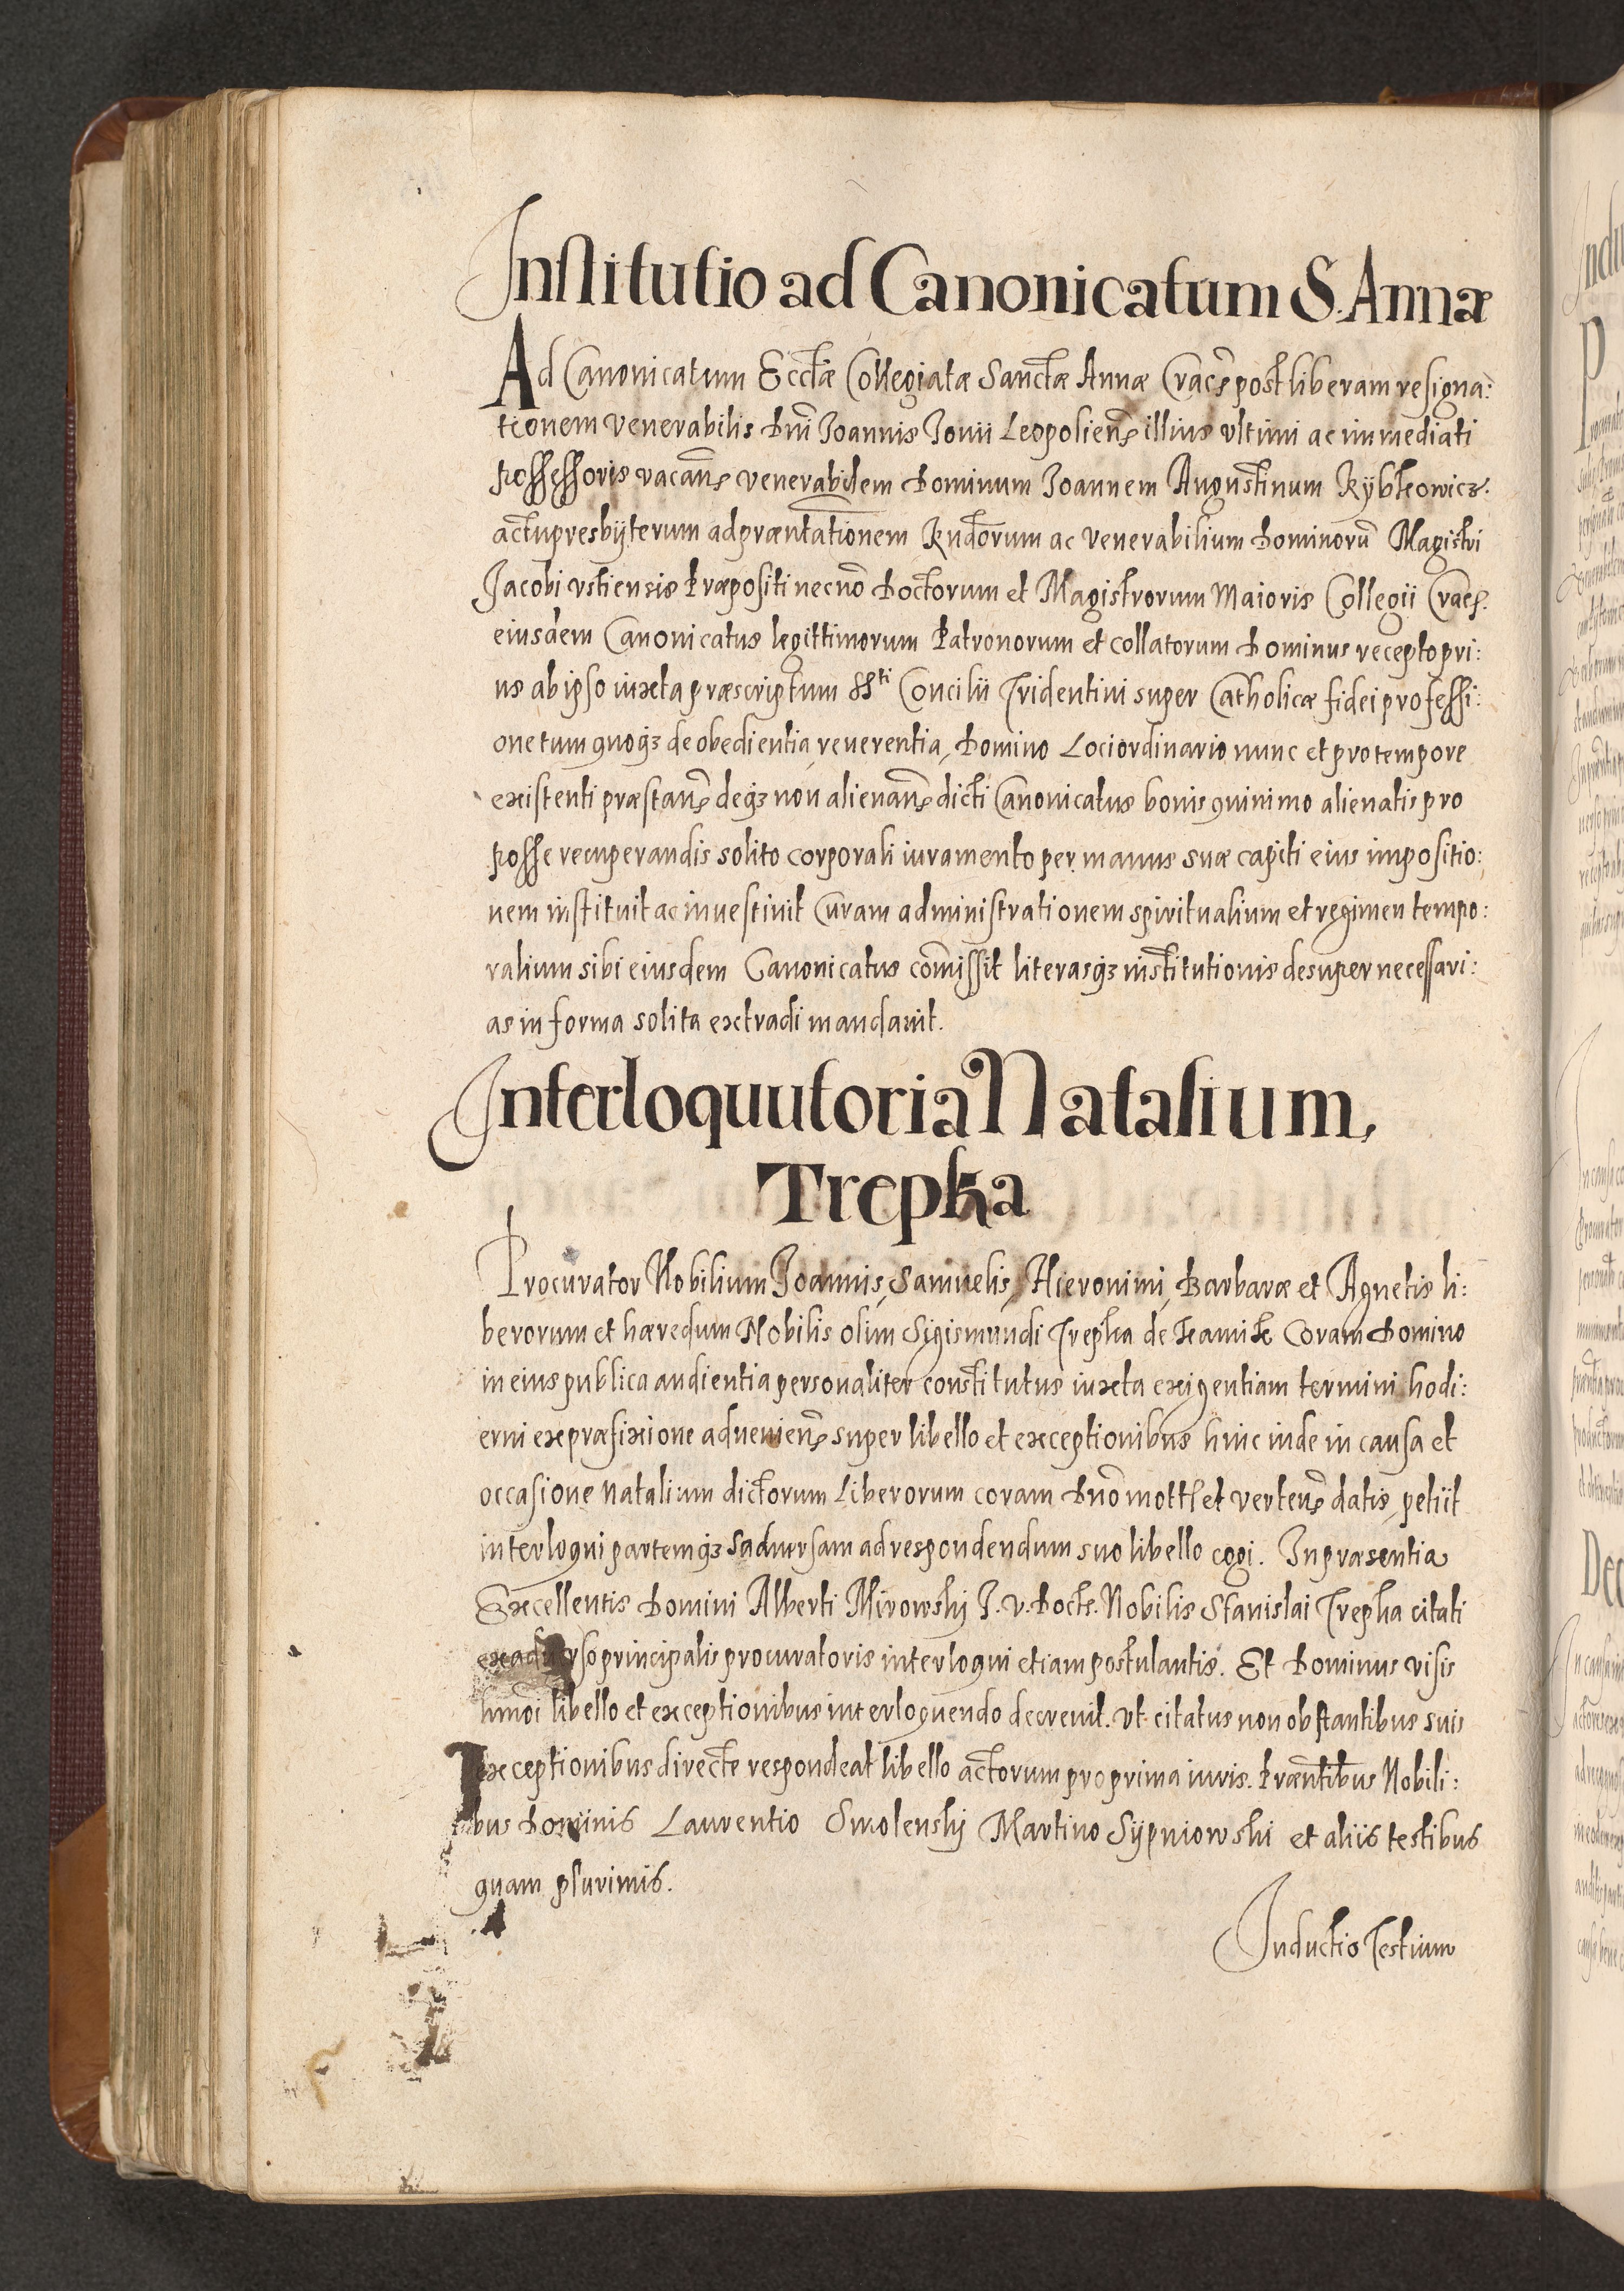 Institutio ad Canonicatum S. Annæ
Ad Canonicatum Ecctæ Collegiatæ Sanctæ Annæ Crac. post liberam resigna:
tionem venerabilis Dni Joannis Jonii Leopolien. illius vltimi ac immediati
possessoris vacan. venerabilem Dominum Joannem Augustinum
actu presbyterum ad præntationem Rndorum ac venerabilium Dominorū Magistri
Jacobi vstiensis Præpositi necnō Doctorum et Magistrorum Maioris Collegii Crac.
eiusdem Canonicatus legittimorum Patronorum et collatorum Dominus recepto pri:
us ab ipso iuxta præscriptum SSti Concilii Tridentini super Catholicæ fidei professi:
one tum quoqz de obedientia, reuerentia, Domino Loci ordinario nunc et pro tempore
existenti præstan. deqz non alienan. dicti Canonicatus bonis quinimo alienatis pro
posse recuperandis solito corporali iuramento per manus suæ capiti eius impositio:
nem instituit ac inuestiuit Curam administrationem spiritualium et regimen tempo:
ralium sibi eiusdem Canonicatus comissit literasqz institutionis desuper necessari:
as in forma solita extradi mandauit.
Interloquutoria Natalium,
Trepka
Procurator Nobilium Joannis, Samuelis, Hieronimi, Barbaræ et Agnetis li:
berorum et hæredum Nobilis olim Sigismundi Trepka de Coram Domino
in eius publica audientia personaliter constitutus iuxta exigentiam termini hodi:
erni ex præfixione aduenien. super libello et exceptionibus hinc inde in causa et
occasione natalium dictorum Liberorum coram Dno et verten. datis, petiit
interloqui partemqz aduersam ad respondendum suo libello cogi. In præsentia
Excellentis Domini Alberti Mirowskj J. V. Doct. Nobilis Stanislai Trepka citati
ex aduerso principalis procuratoris interloqui etiam postulantis. Et Dominus visis
hmōi libello et exceptionibus interloquendo decreuit. Vt citatus non obstantibus suis
exceptionibus directe respondeat libello actorum pro prima iuris. Præntibus Nobili:
bus Dominis Laurentio Smolenskj Martino Sypniowski et aliis testibus
quam plurimis.
Inductio Testium